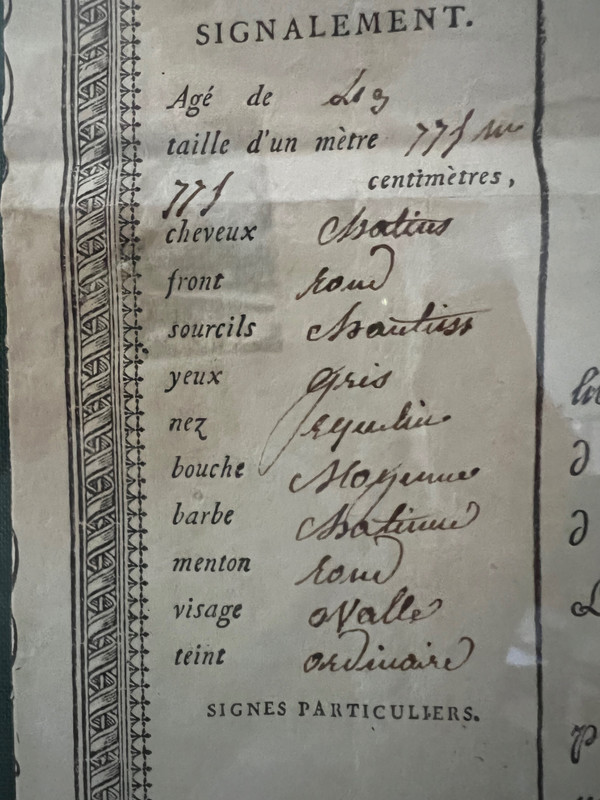 SIGNALEMENT.
Agé de
taille d'un mètre 775 m
centimètres,
775
cheveux Chatins
front rond
sourcils Chautins
yeux Gris
nez equilin
bouche Moyenne
barbe Chatinne
menton rond
visage oValle
teint ordinaire
SIGNES PARTICULIERS.